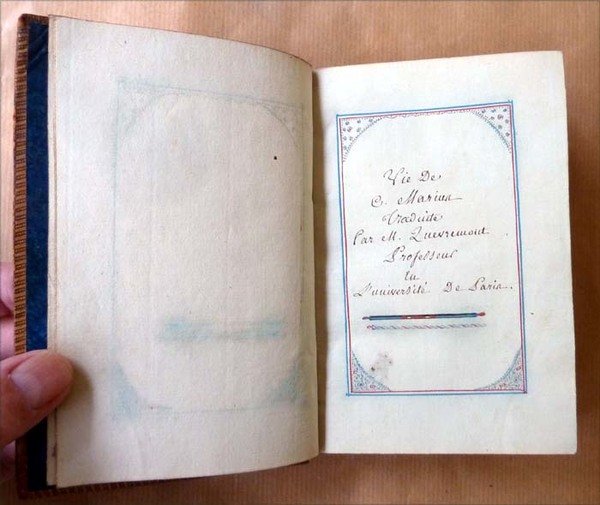 Vie De
C. Marius
Traduite
Par M. Queuremont.
Professeur
En
L'université De Paris.